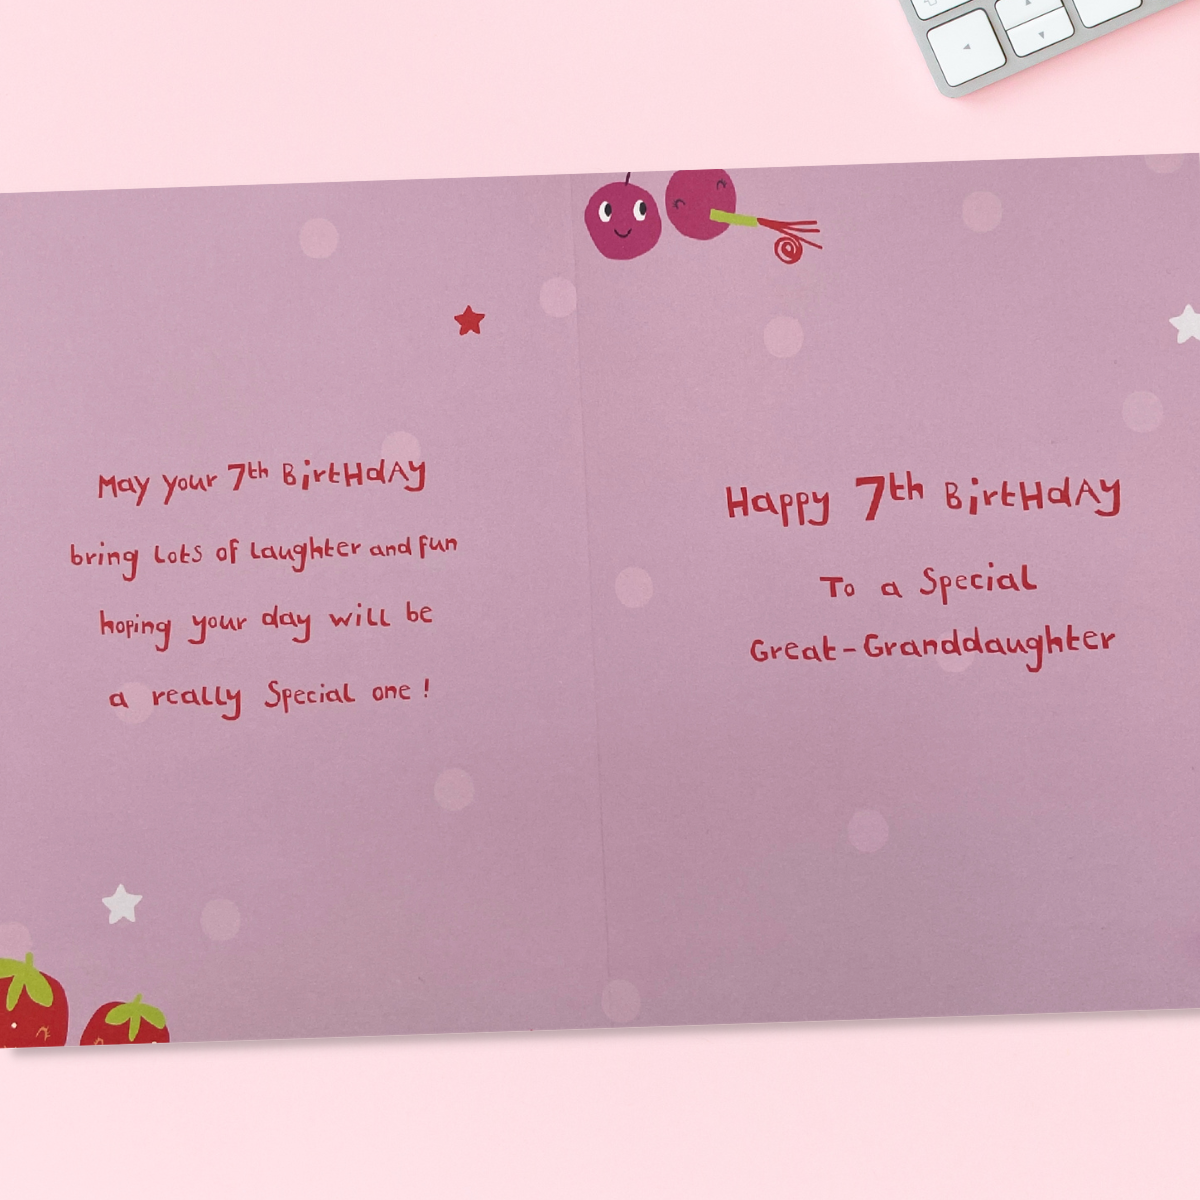 May your 7th BirtHdAy
bring Lots of Laughter and fun
hoping your day will be
a really Special one!
Happy 7th BirtHdAy
To a Special
Great-Granddaughter